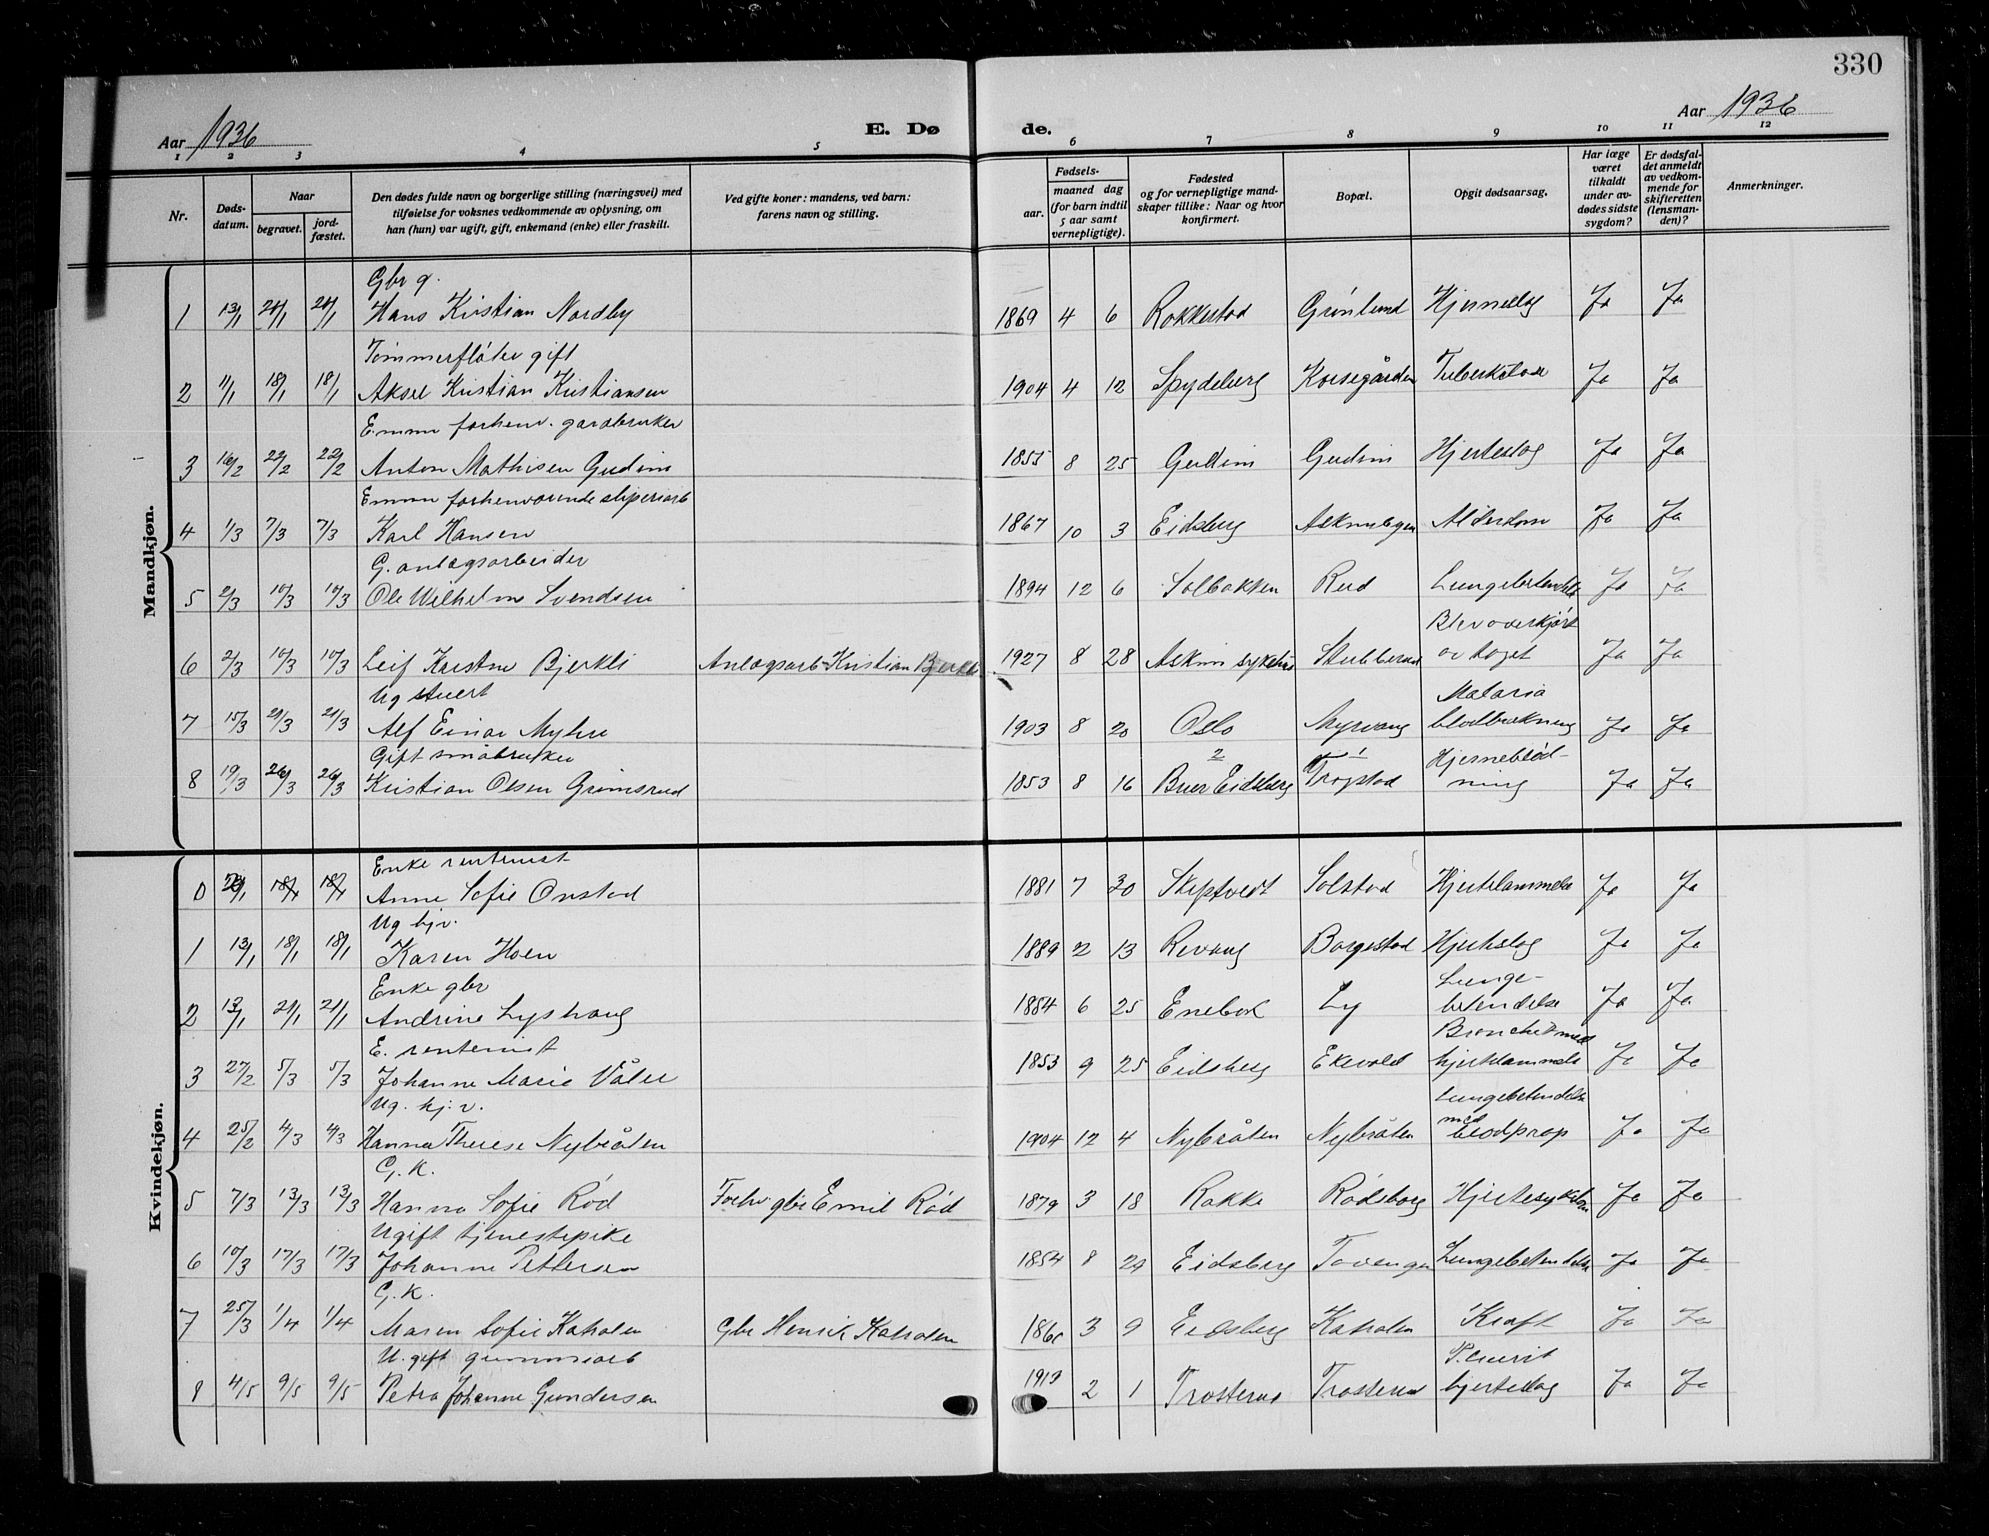 330
Aar 1936
E. Dø
de.
Aar 1936
1 2 3 4 5 6 7 8 9 10 11 12
Nr. Døds-datum. Naar begravet. jord-fæstet. Den dødes fulde navn og borgerlige stilling (næringsvei) med tilføielse for voksnes vedkommende av oplysning, om han (hun) var ugift, gift, enkemand (enke) eller fraskilt. Ved gifte koner: mandens, ved barn: farens navn og stilling. Fødsels- aar. maaned dag (for barn indtil 5 aar samt vernepligtige). Fødested og for vernepligtige mandskaper tillike: Naar og hvor konfirmert. Bopæl. Opgit dødsaarsag. Har læge været tilkaldt under avdødes sidste sygdom? Er dødsfaldet anmeldt av vedkommende for skifteretten (lensmanden)? Anmerkninger.
Mandkjøn.
Gbr g.
1 13/1 24/1 24/1 Hans Kristian Nordby 1869 4 6 Rokkestad Grønlund Hjerneslag Ja Ja
Tømmerfløter gift
2 11/1 18/1 18/1 Aksel Kristian Kristiansen 1904 4 12 Spydeberg Korsegården Tuberkulose Ja Ja
Emm forhenv. gardbruker
3 16/2 22/2 22/2 Anton Mathisen Gudim 1855 8 25 Gudim Gudim Hjerteslag Ja Ja
Emm forhenværende sliperiarb
4 1/3 7/3 7/3 Karl Hansen 1867 10 3 Eidsberg Askimbyen Alderdom Ja Ja
G. anlegsarbeider
5 2/3 10/3 10/3 Ole Wilhelm Svendsen 1894 12 6 Solbakken Rud Lungebetendelse Ja Ja
Blev overkjørt
6 2/3 10/3 10/3 Leif Kristen Bjerkli Anlegsarb Kristian Bjerkli 1927 8 28 Askim sykehus Stubberud av toget Ja Ja
Ug stuert Malaria
7 15/3 21/3 21/3 Alf Einar Myhre 1903 8 20 Oslo Myrvang blodbrekning Ja Ja
Gift småbruker 2 1 Hjerneblød-
8 19/3 26/3 26/3 Kristian Olsen Grimsrud 1853 8 16 Buer Eidsberg Trøgstad ning Ja Ja
Kvindekjøn.
Enke rentenist
0 18/1 18/1 Anne Sofie Onstad 1881 7 30 Skiptvedt Solstad Hjertelammelse Ja Ja
Ug hjv.
1 13/1 18/1 18/1 Karen Hoen 1889 2 13 Revaug Borgestad Hjerteslag Ja Ja
Enke gbr Lunge-
2 13/1 21/1 21/1 Andrine Lyshaug 1854 6 25 Enebak Ly betendelse Ja Ja
E. rentenist Bronchit med
3 27/2 5/3 5/3 Johanne Marie Våler 1853 9 25 Eidsberg Ekevold hjertelammelse Ja Ja
Ug. hj. v. Lungebetendelse
4 25/2 4/3 4/3 Hanna Therese Nybråten 1904 12 4 Nybråten Nybråten med blodprop Ja Ja
G. K.
5 7/3 13/3 13/3 Hanna Sofie Rød Forhv gbr Emil Rød 1879 3 18 Rakke Rødsborg Hjertesykdom Ja Ja
Ugift tjenestepike
6 10/3 17/3 17/3 Johanne Pettersen 1854 8 Eidsberg Tovengen Lungebetendelse Ja Ja
G. K.
7 25/3 1/4 1/4 Maren Sofie Katralen Gbr Henrik Katralen 3 9 Eidsberg Katralen Kræft Ja Ja
U. gift gummiarb Pleurit
8 4/5 9/5 9/5 Petra Johanne Gundersen 2 1 Trosterud Trosterud hjerteslag Ja Ja